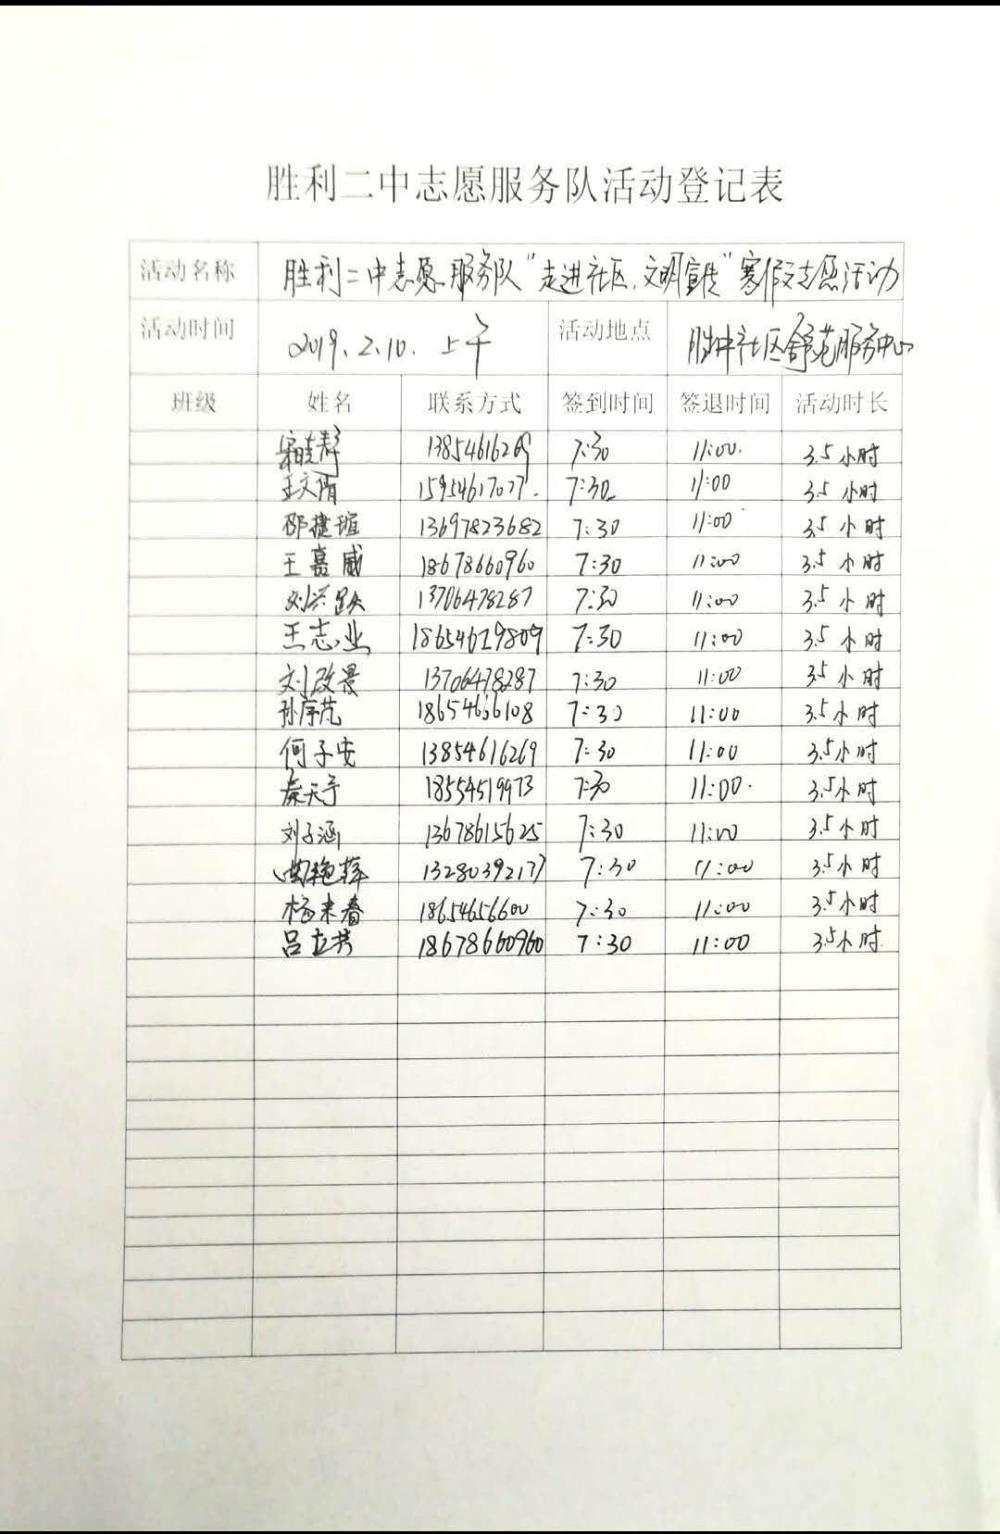 胜利二中志愿服务队活动登记表
活动名称 胜利二中志愿服务队“走进社区,文明宣传”寒假志愿活动
活动时间 2019.2.10.上午 活动地点 胜中社区舒苑服务中心
班级 姓名 联系方式 签到时间 签退时间 活动时长
7:30 11:00. 3.5小时
15954617077. 7:30 11:00 3.5小时
邵捷瑄 13697823682 7:30 11:00 3.5小时
王嘉威 18678660960 7:30 11:00 3.5小时
13706478287 7:30 11:00 3.5小时
王志业 18654619809 7:30 11:00 3.5小时
刘改景 13706478287 7:30 11:00 3.5小时
18654636108 7:30 11:00 3.5小时
何子安 13854616269 7:30 11:00 3.5小时
秦天宇 18554519973 7:30 11:00. 3.5小时
刘子涵 13678615625 7:30 11:00 3.5小时
曲艳萍 13280392177 7:30 11:00 3.5小时
杨来春 18654656600 7:30 11:00 3.5小时
吕立芳 18678660960 7:30 11:00 3.5小时